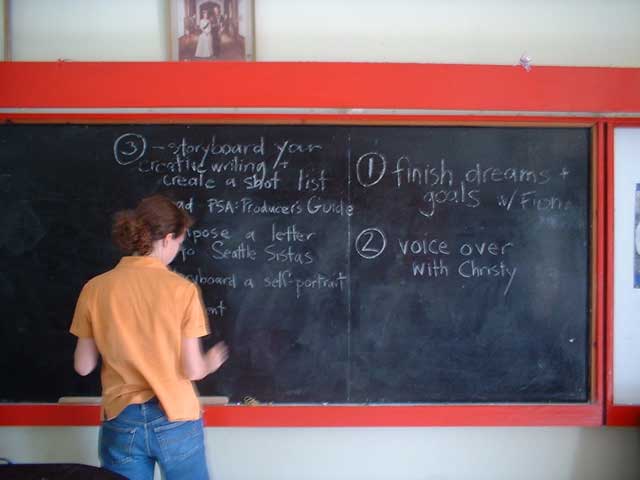 ③ - storyboard your
creative writing +
create a shot list
PSA: Producer's Guide
a letter
to Seattle Sistas
a self-portrait
① finish dreams +
goals w/
② voice over
with Christy